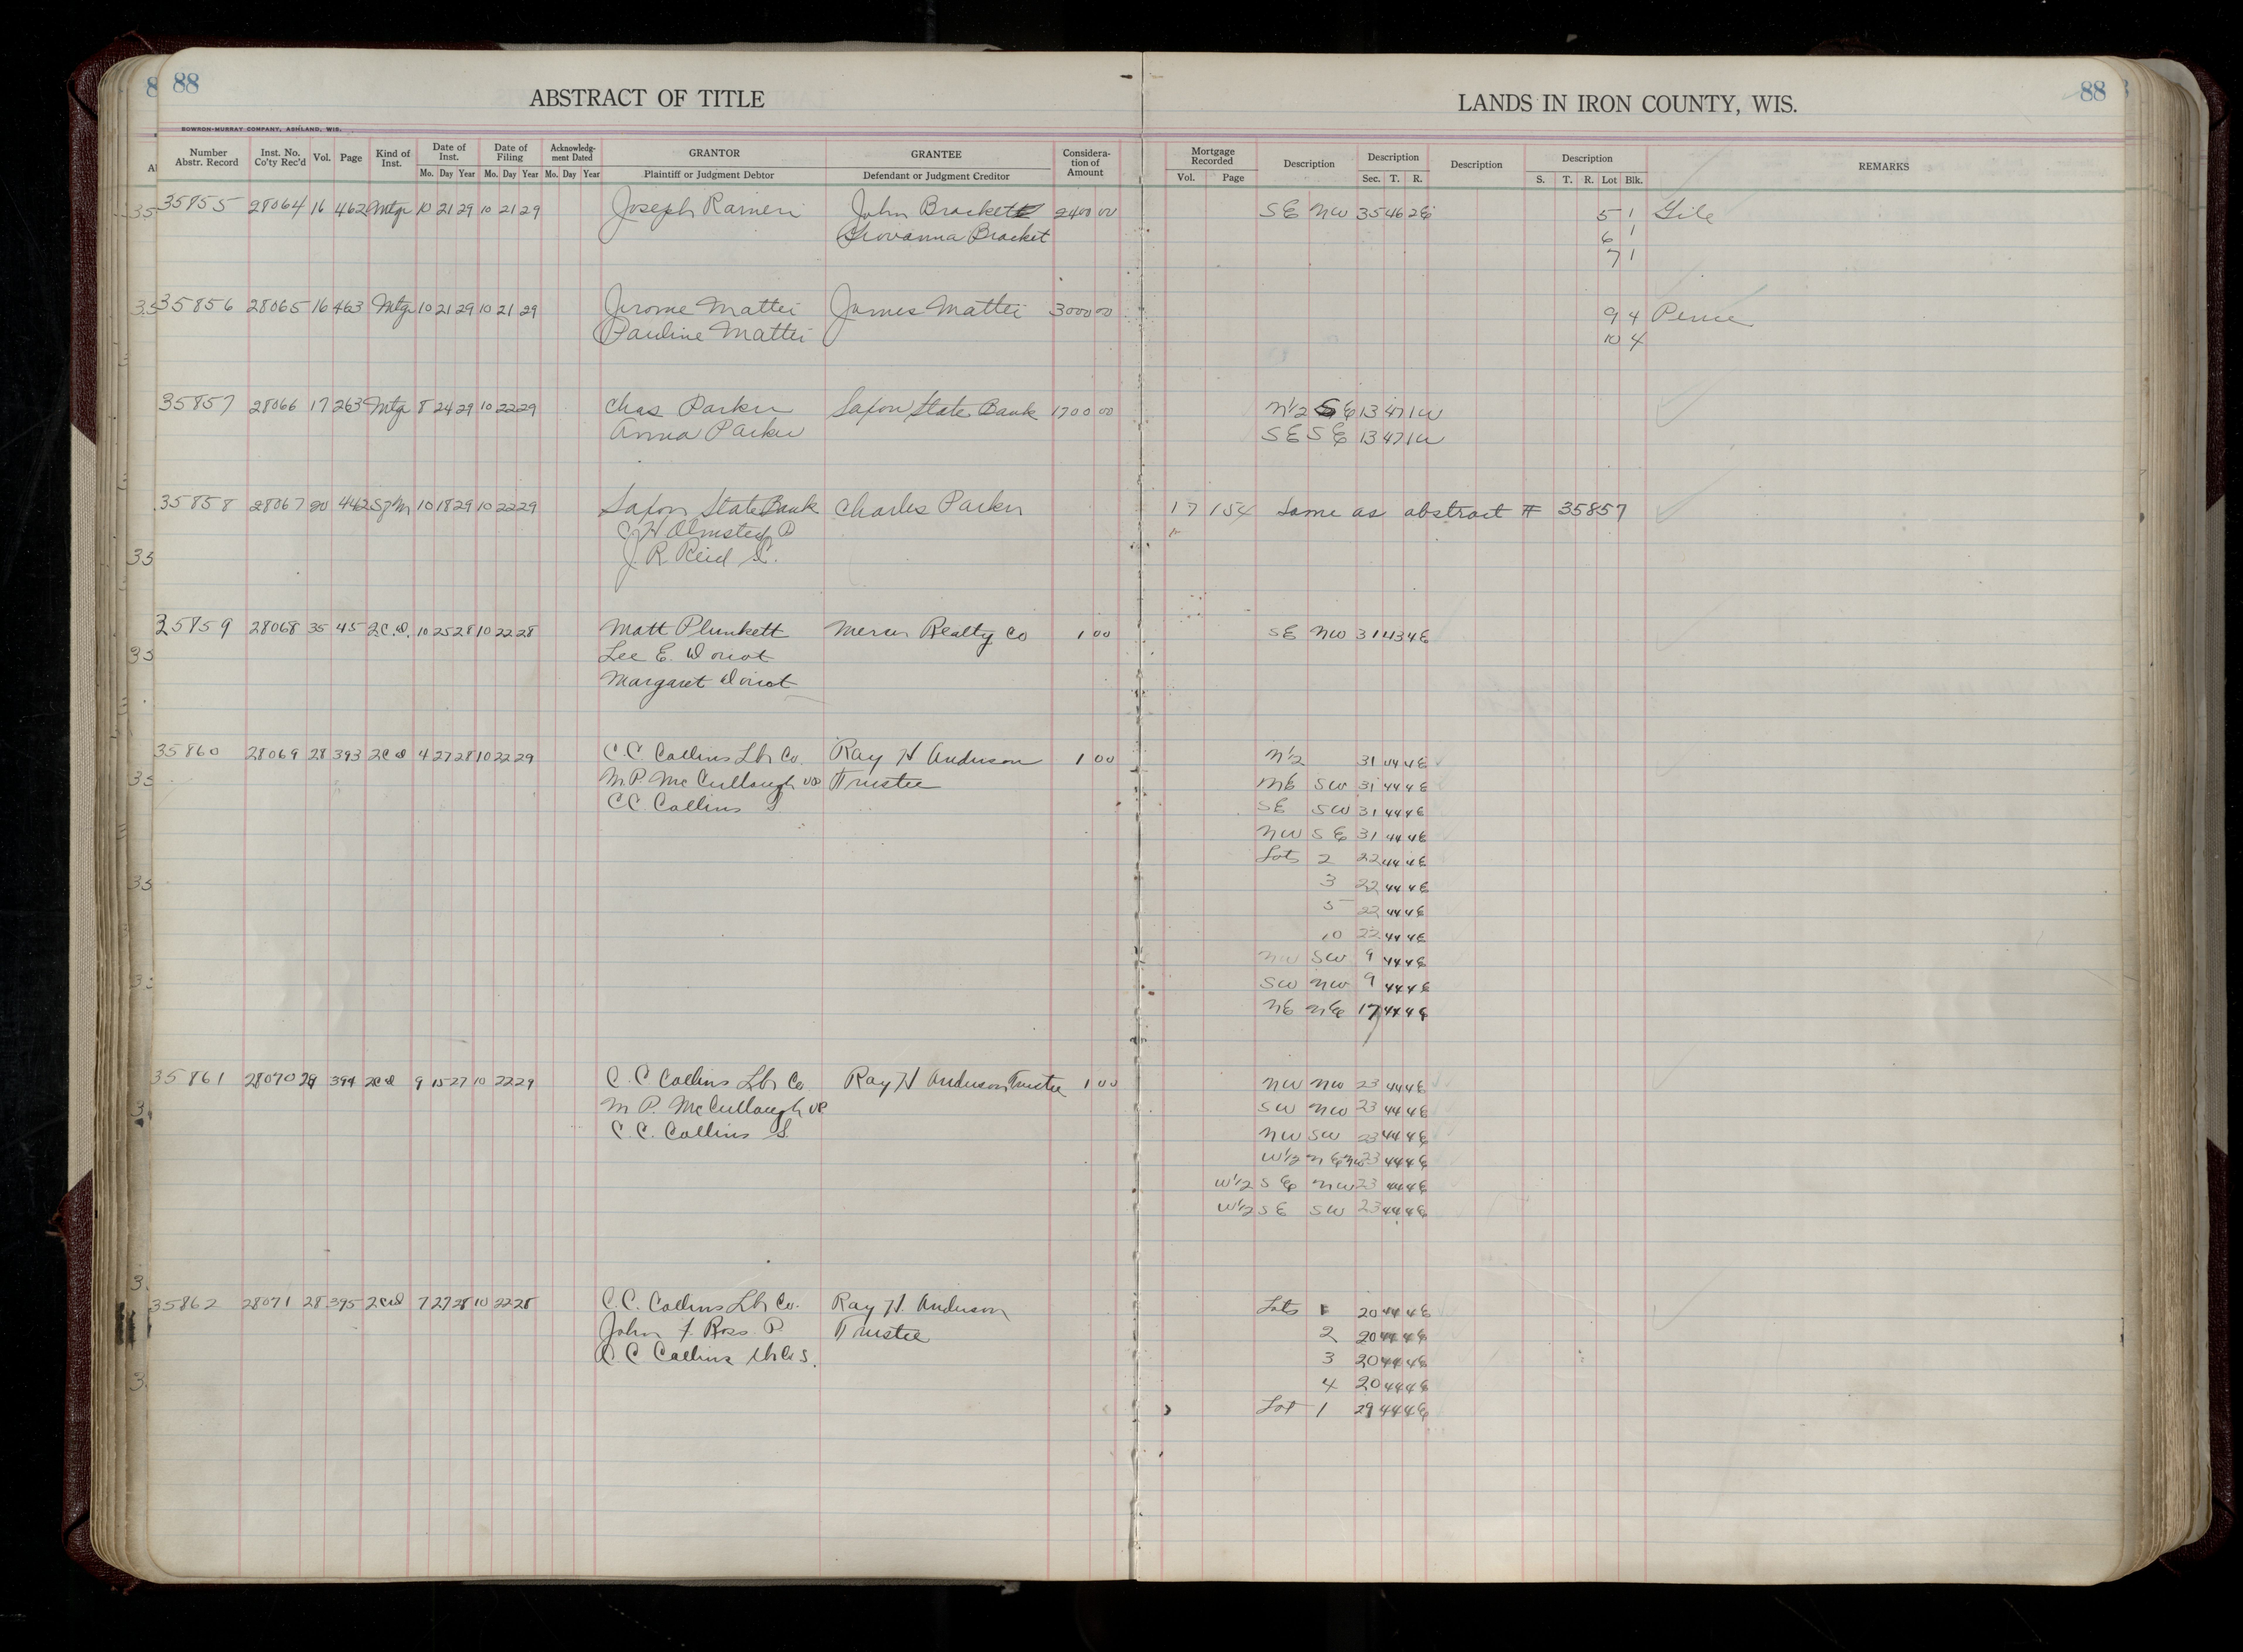 88 ABSTRACT OF TITLE LANDS IN IRON COUNTY, WIS. 88
BOWRON-MURRAY COMPANY, ASHLAND, WIS.
Number Abstr. Record Inst. No. Co'ty Rec'd Vol. Page Kind of Inst. Date of Inst. Date of Filing Acknowledgment Dated GRANTOR GRANTEE Consideration of Amount Mortgage Recorded Description Description Description Description REMARKS
Mo. Day Year Mo. Day Year Mo. Day Year Plaintiff or Judgment Debtor Defendant or Judgment Creditor Vol. Page Sec. T. R. S. T. R. Lot Blk.
35855 28064 16 462 Mtg 10 21 29 10 21 29 Joseph Raineri John Brackett 2400 00 SE NW 35 46 2E 5 1 Gile
Giovanna Bracket 6 1
7 1
35856 28065 16 463 Mtg 10 21 29 10 21 29 Jerome Mattei James Mattei 3000 00 9 4 Pence
Pauline Mattei 10 4
35857 28066 17 263 Mtg 8 24 29 10 22 29 Chas Parker Saxon State Bank 1700 00 N1/2 SE 13 47 1W
Anna Parker SE SE 13 47 1W
35858 28067 20 442 SfM 10 18 29 10 22 29 Saxon State Bank Charles Parker 17 154 Same as abstract # 35857
C H Olmsted P
J. R. Reid S.
35859 28068 35 45 2C.D. 10 25 28 10 22 28 Matt Plunkett Mercer Realty Co 1 00 SE NW 31 43 4E
Lee E. Doriot
Margaret Doriot
35860 28069 28 393 2CD 4 27 28 10 22 29 C.C. Collins Lbr Co. Ray H Anderson 1 00 N1/2 31 44 4E
M.P. McCullough VP Trustee NE SW 31 44 4E
CC Collins S SE SW 31 44 4E
NW SE 31 44 4E
Lots 2 22 44 4E
3 22 44 4E
5 22 44 4E
10 22 44 4E
NW SW 9 44 4E
SW NW 9 44 4E
NE NE 17 44 4E
35861 28070 28 394 2CD 9 15 27 10 22 29 C. C Collins Lbr Co. Ray H Anderson Trustee 1 00 NW NW 23 44 4E
M P. McCullough VP SW NW 23 44 4E
C. C. Collins S. NW SW 23 44 4E
W1/2 NE NW 23 44 4E
W1/2 SE NW 23 44 4E
W1/2 SE SW 23 44 4E
35862 28071 28 395 2CD 7 27 28 10 22 28 C.C. Collins Lbr Co. Ray H. Anderson Lots 1 20 44 4E
John F. Ross P. Trustee 2 20 44 4E
C C Collins S. 3 20 44 4E
4 20 44 4E
Lot 1 29 44 4E